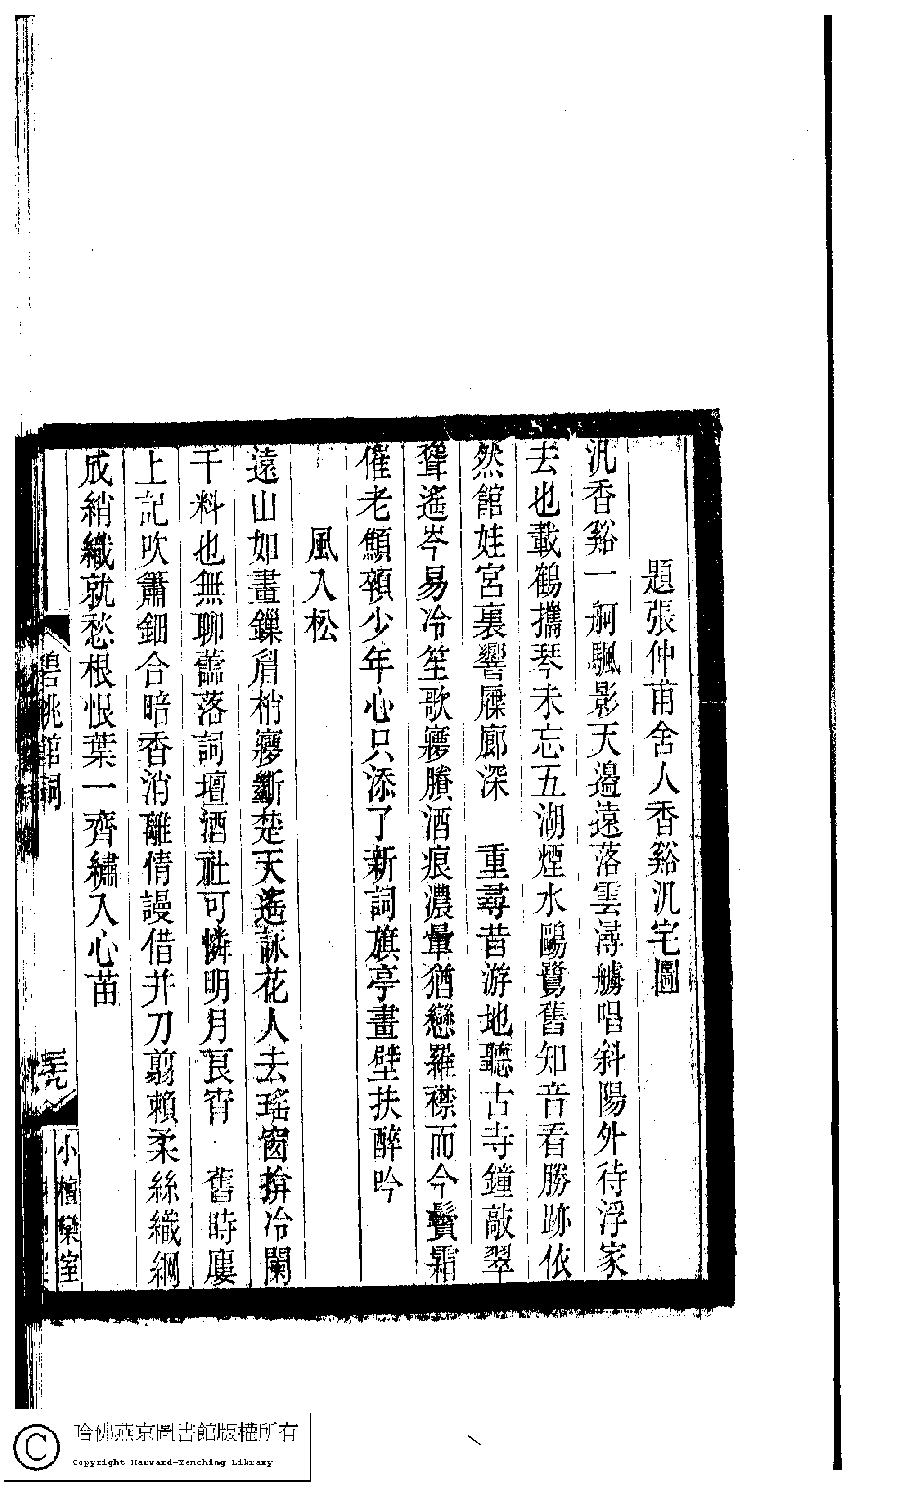 題張仲甫舍人香谿汎宅圖
汎香谿一舸颿影天邊遠落雲潯艣唱斜陽外待浮家
去也載鶴攜琴未忘五湖煙水鷗鷺舊知音看勝跡依
然館娃宮裏響屧廊深　重尋昔游地聽古寺鐘敲翠
聳遙岑易冷笙歌㝱賸酒痕濃暈猶戀羅襟而今鬢霜
催老顦顇少年心只添了新詞旗亭畫壁扶醉吟
風入松
遠山如畫鏁眉梢㝱斷楚天遙詠花人去瑤窗揜冷闌
干料也無聊蘦落詞壇酒社可憐明月良宵　舊時屢
上記吹簫鈿合暗香消離情謾借并刀翦賴柔絲織綢
成綃織就愁根恨葉一齊繡入心苗
碧桃館詞
小檀欒室
哈佛燕京圖書館版權所有
Copyright Harvard-Yenching Library